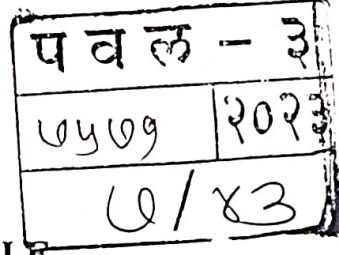 पवल - ३
७५७१ २०२३
७/४३